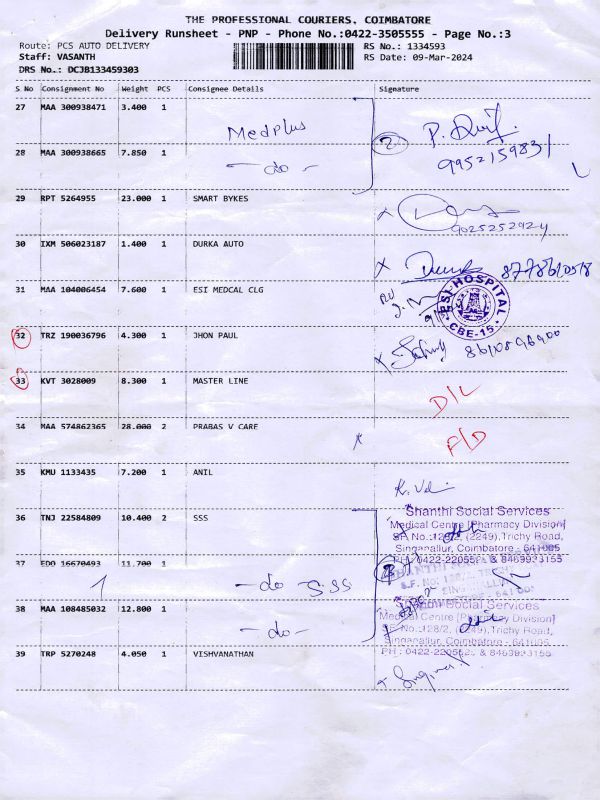 THE PROFESSIONAL COURIERS, COIMBATORE
Delivery Runsheet - PNP - Phone No.:0422-3505555 - Page No.:3
Route: PCS AUTO DELIVERY RS No.: 1334593
Staff: VASANTH RS Date: 09-Mar-2024
DRS No.: DCJB133459303
S No Consignment No Weight PCS Consignee Details Signature
27 MAA 300938471 3.400 1 Medplus
28 MAA 300938665 7.850 1 -do- 2 9952159831
29 RPT 5264955 23.000 1 SMART BYKES
9025252924
30 IXM 506023187 1.400 1 DURKA AUTO
8778610518
31 MAA 104006454 7.600 1 ESI MEDCAL CLG
ESI-HOSPITAL
CBE-15
32 TRZ 190036796 4.300 1 JHON PAUL
8610896900
33 KVT 3028009 8.300 1 MASTER LINE D/L
34 MAA 574862365 28.000 2 PRABAS V CARE F/D
35 KMU 1133435 7.200 1 ANIL
36 TNJ 22584809 10.400 2 SSS
Shanthi Social Services
Medical Centre [Pharmacy Division]
SF No.:128/2, (2249),Trichy Road,
Singanallur, Coimbatore - 641005
PH : 0422-2205521 & 8469923155
37 EDO 16670493 11.700 1 -do SSS
38 MAA 108485032 12.800 1 -do-
Shanthi Social Services
Medical Centre [Pharmacy Division]
SF No.:128/2, (2249),Trichy Road,
Singanallur, Coimbatore - 641005
39 TRP 5270248 4.050 1 VISHVANATHAN